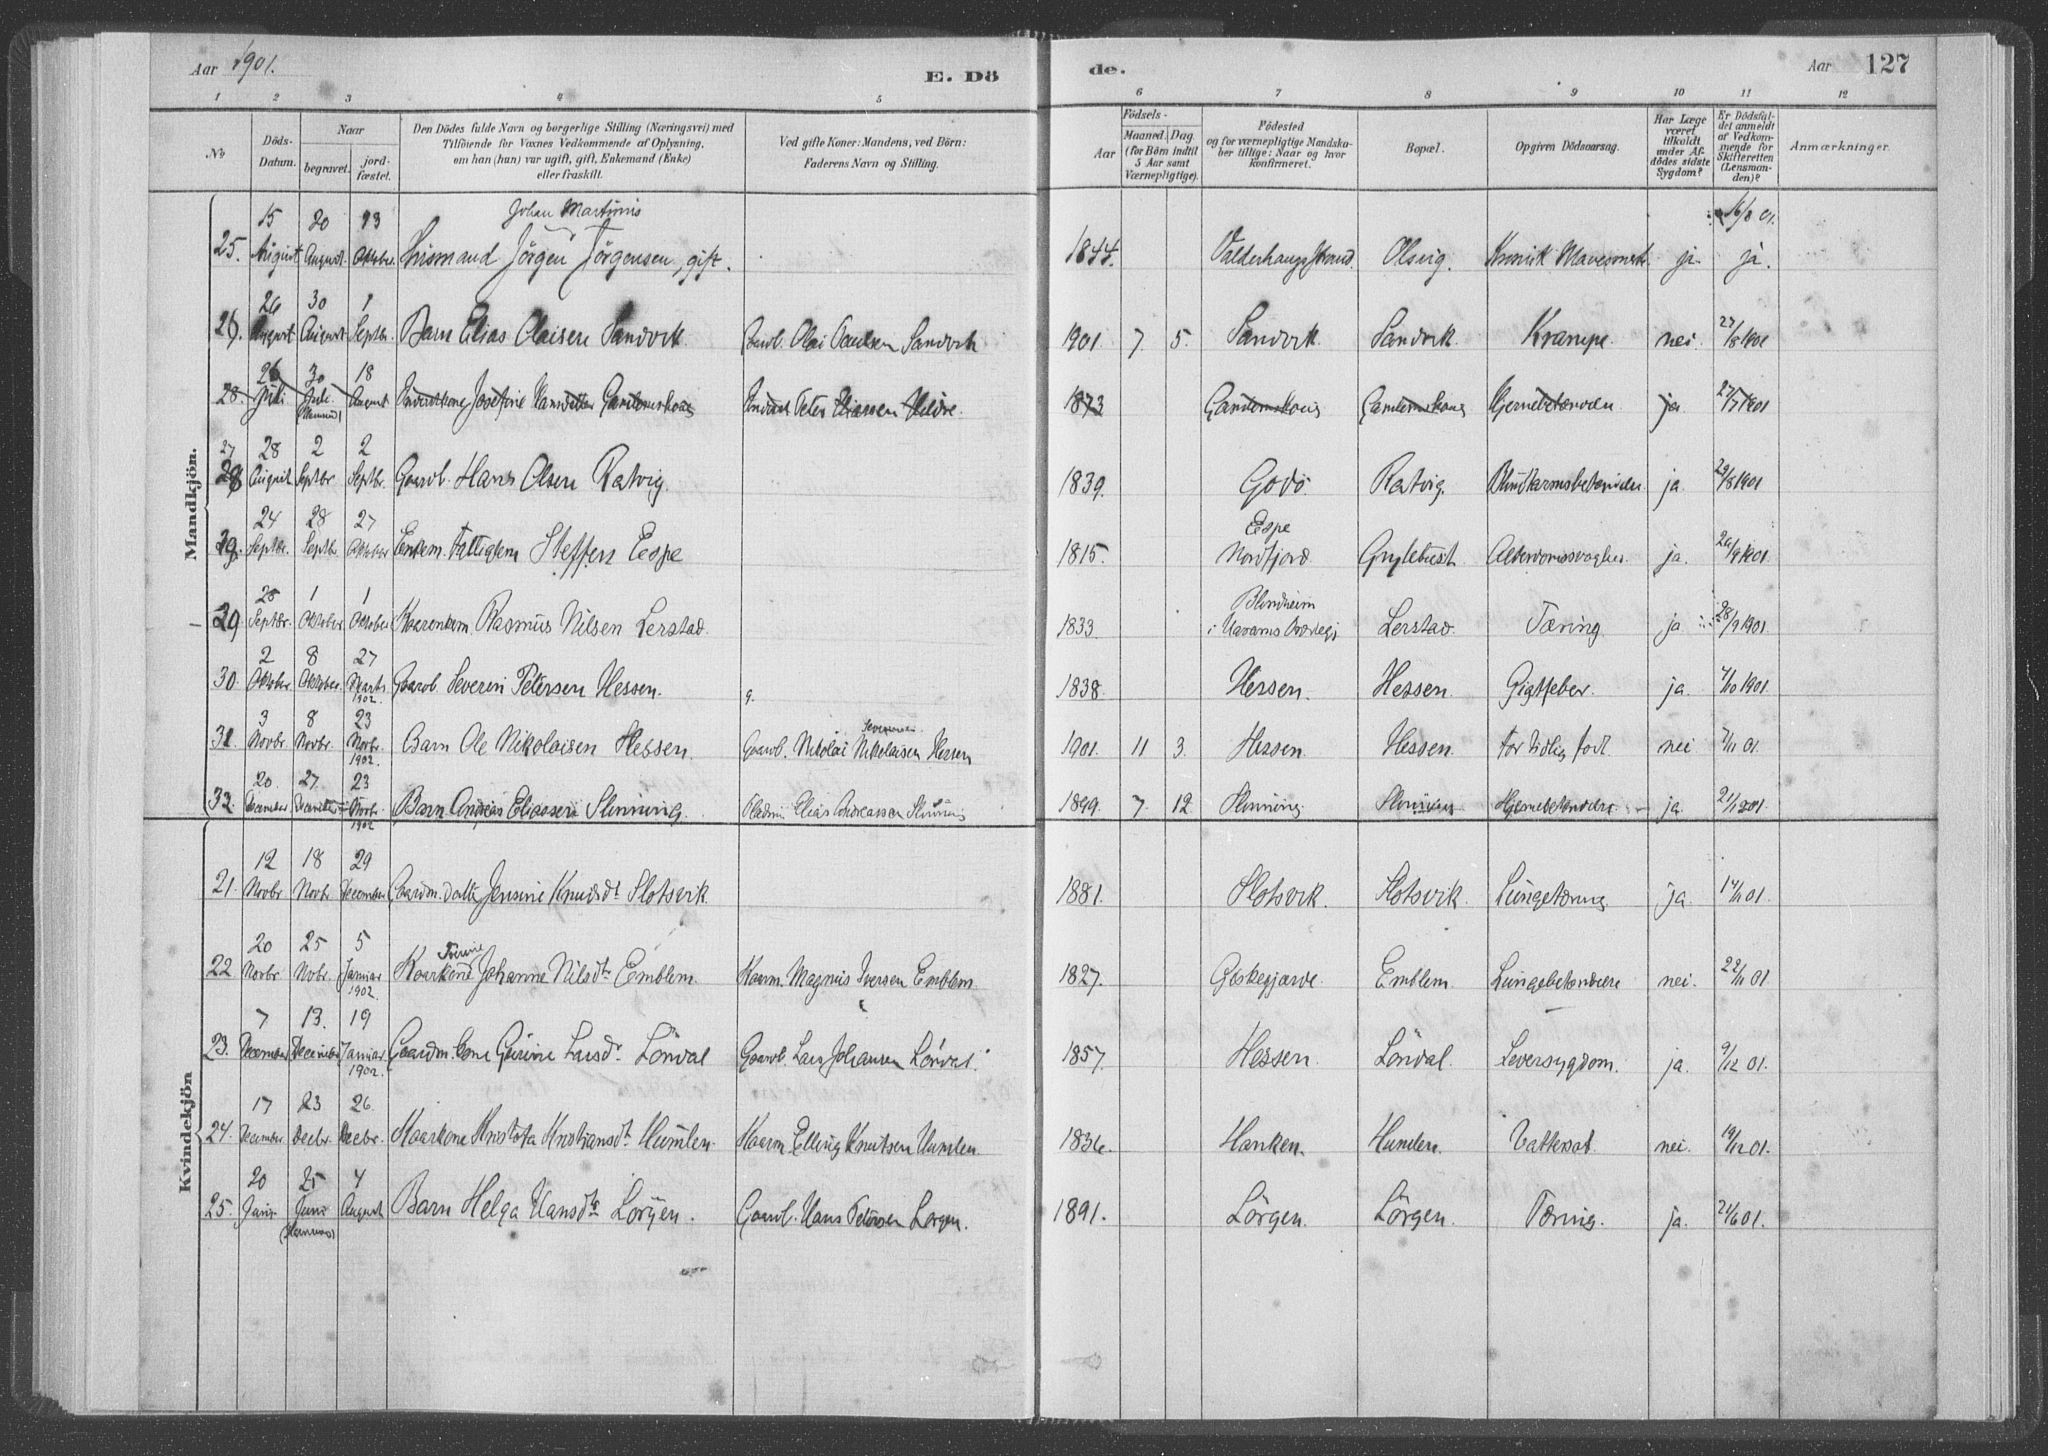 Aar 1901.
E. Dö
de.
Aar
127
1 2 3 4 5 6 7 8 9 10 11 12
No
Döds-
Datum.
Naar
begravet.
jord-
fæstet.
Den Dödes fulde Navn og borgerlige Stilling (Næringsvei) med
Tilföiende for Voxnes Vedkommende af Oplysning,
om han (hun) var ugift, gift, Enkemand (Enke)
eller fraskilt.
Ved gifte Koner: Mandens, ved Börn:
Faderens Navn og Stilling.
Födsels-
Aar
Maaned. Dag.
(for Börn indtil
5 Aar samt
Værnepligtige).
Födested
og for værnepligtige Mandska-
ber tillige: Naar og hvor
konfirmeret.
Bopæl.
Opgiven Dödsaarsag.
Har Læge
været
tilkaldt
under Af-
dödes sidste
Sygdom?
Er Dödsfal-
det anmeldt
af Vedkom-
mende for
Skifteretten
(Lensman-
den)?
Anmærkninger.
Mandkjön.
15 20 13 Johan Martinus 16/8 01.
25. August August. Oktober. Husmand Jörgen Jörgensen, gift. 1844. Valderhaugstrand. Olsvig. Kronisk ja ja.
26 30 1
26. August August Septbr. Barn Elias Olaisen Sandvik Gaarb. Olai Paulsen Sandvik 1901 7 5. Sandvik. Sandvik. Krampe. nei. 27/8 1901
26 30 18
28. Juli Juli August Josefine Hansdatter Peter Eliassen 1873 Hjernebetændelse ja 27/7 1901
27 28 2 2
August Septbr. Septbr. Gaarb. Hans Olsen Ratvig. 1839. Godö. Ratvig. Blindtarmsbetændelse ja. 29/8 1901
24 28 27 Espe
Septbr. Septbr. Oktober Enkem. Fattiglem Steffen Espe 1815. Nordfjord Alderdomssvaghed. ja. 26/9 1901.
28 1 1 Blindheim
29 Septbr. Oktober Oktober Kaarenkem. Rasmus Nilsen Lerstad. 1833. Lerstad. Tæring ja 28/9 1901.
2 8 27
30. Oktober Oktober. Marts 1902. Gaarb. Severin Petersen Hessen. g. 1838. Hessen. Hessen. Gigtfeber. ja. 4/10 1901.
3 8 23
31. Novbr. Novbr. Novbr. 1902. Barn Ole Nikolaisen Hessen. Gaarb. Nikolai Nikolaisen Hessen 1901. 11 3. Hessen. Hessen. For tidlig født nei 7/11 01.
20. 27. 23
32. December December Novbr. 1902 Barn Andreas Eliassen Slinning. Elias Andreassen Slinning 1899 7. 12. Slinning Slinning Hjernebetændelse ja. 21/12 01.
Kvindekjön
12 18 29
21. Novbr. Novbr. December Gaardm. datter Jensine Knudsdt. Slotsvik. 1881. Slotsvik. Slotsvik. Lungetæring ja. 14/11 01.
20 25 5
22 Novbr. Novbr. Januar 1902. Kaarkone Johanne Nilsdt. Emblem. Kaarm. Magnus Iversen Emblem. 1827. Giskegjærde. Emblem. Lungebetændelse nei. 22/11 01.
7 13. 19
23. December December Januar 1902. Gaardm. kone Gurine Larsdt. Lönval Gaarb. Lars Johansen Lönval. 1857. Hessen. Lönval. Leversygdom. ja. 9/12 01.
17 23 26.
24. December Decbr. Decbr. Kaarkone Kristofa Kristiansdt. Humlen. Kaarm. Elling Knutsen Humlen. 1836. Hanken. Humlen. Vattersot. nei. 19/12 01.
20 25 4
25. Juni Juni August Barn Helga Hansdt. Lörgen. Gaarb. Hans Petersen Lörgen. 1891. Lörgen. Lörgen. Tæring. ja. 21/6 01.